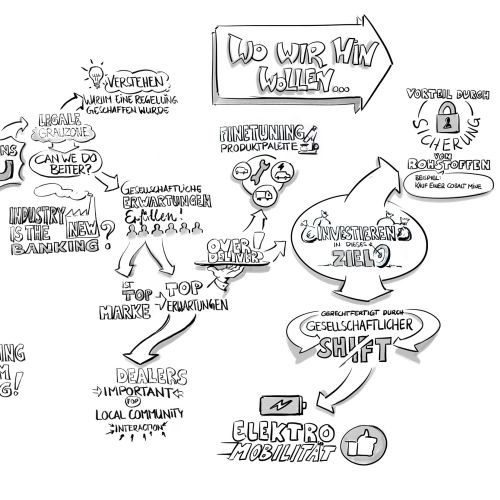 WO WIR HIN
WOLLEN...
VERSTEHEN
WARUM EINE REGELUNG
GESCHAFFEN WURDE
LEGALE
GRAUZONE
CAN WE DO
BETTER?
INDUSTRY
IS THE NEW
BANKING?
GESELLSCHAFTLICHE
ERWARTUNGEN
Erfüllen!
IST
TOP
MARKE
TOP
ERWARTUNGEN
DEALERS
IMPORTANT
FOR
LOCAL COMMUNITY
INTERACTION
FINETUNING
PRODUKTPALETTE
OVER
DELIVER!
INVESTIEREN
IN DIESES
ZIEL
VORTEIL DURCH
SICHERUNG
VON
ROHSTOFFEN
BEISPIEL:
KAUF EINER COBALT MINE
GERECHTFERTIGT DURCH
GESELLSCHAFTLICHER
SHIFT
ELEKTRO
MOBILITÄT